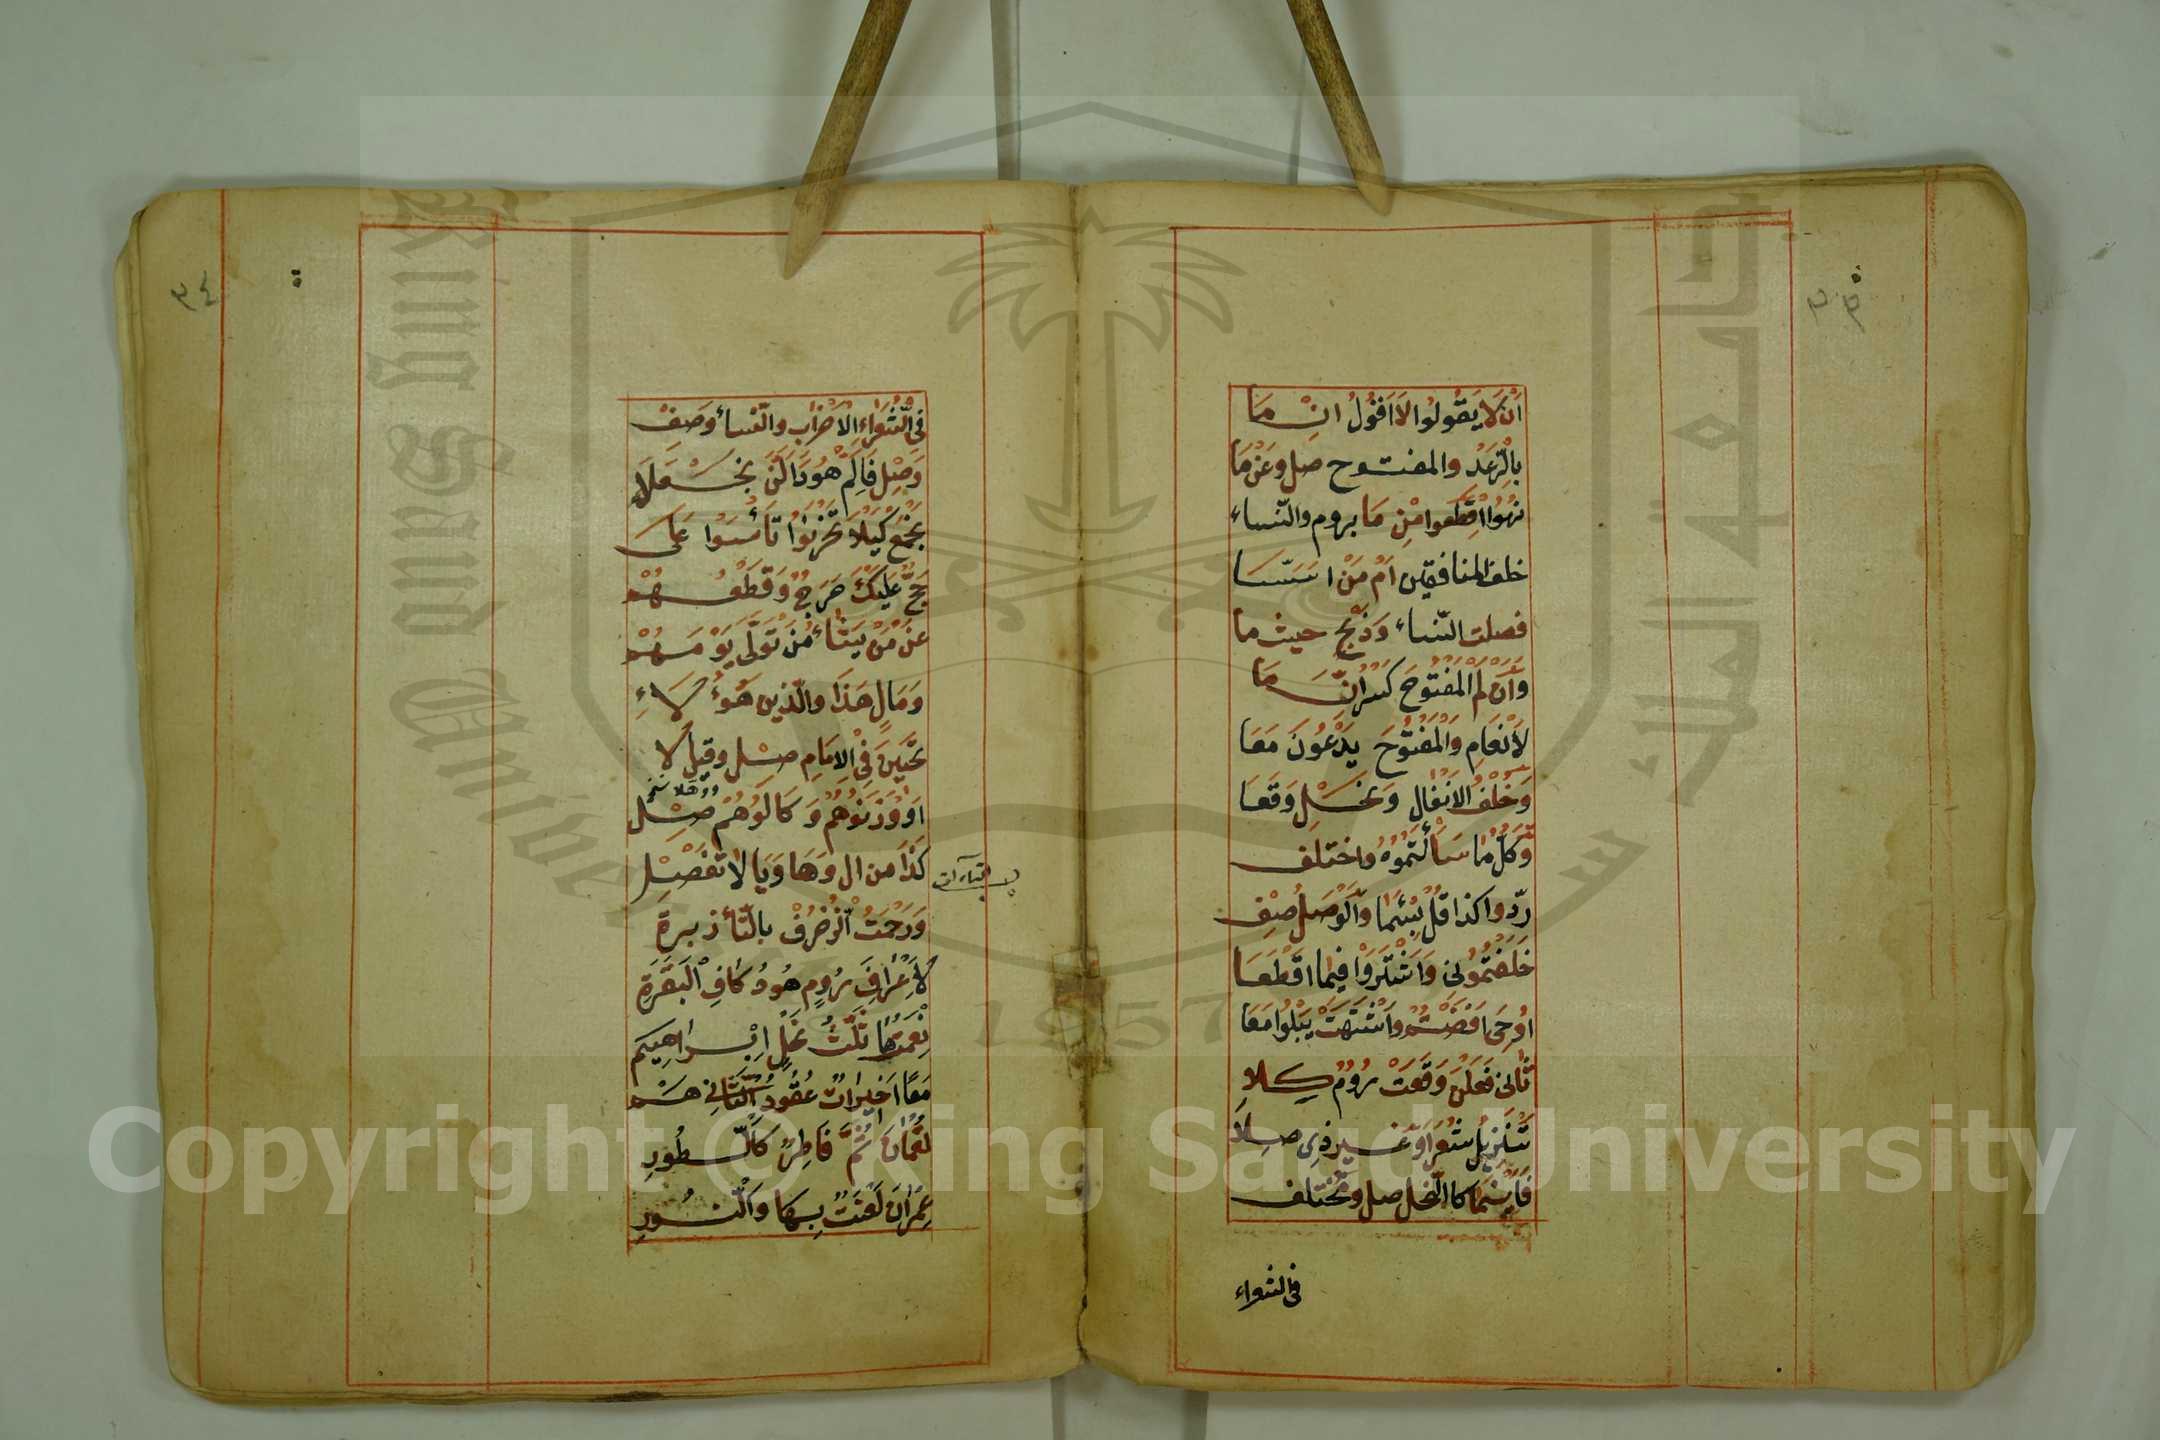 ٣٣
اَنْ لَا يَقُولُوا لَا اَقُولُ اِنْ مَا
بِالرَّعْدِ والمفتوح صل وعَنْ مَا
نُهُوْا اقْطَعُوا مِنْ مَا بروم والنّساء
خلف المنافقين اَمْ مَنْ اسَّسَا
فصلت النّساء وَذِبْحٍ حيث ما
وَاَنْ لَمْ الْمَفْتُوحَ كَسْرُ اِنَّ مَا
لَانْعَامِ وَالْمَفْتُوحَ يَدْعُونَ مَعَا
وَخُلْفُ الْانْفَالِ وَنَحْلٍ وَقَعَا
وَكُلِّ مَا سَأَلْتُمُوهُ واختلف
ردّوا كذا قُلْ بِئْسَمَا وَالْوَصْلُ صِفْ
خَلَفْتُمُونِي وَاشْتَرَوْا فِيمَا اقْطَعَا
اُوحِيَ اَفَضْتُمْ وَاشْتَهَتْ يَبْلُوا مَعَا
ثَانِي فَعَلْنَ وَقَعَتْ رُومٌ كِلَا
تَنْزِيلُ شُعَرَا وَغَيْرَ ذِي صِلَا
فَأَيْنَمَا كَالنَّحْلِ صل وَمُخْتَلِف
فى الشعراء
٣٤
فِي الشُّعَرَاءِ الْاَحْزَابِ والنّساء وَصِفْ
وَصِلْ فَاِلَّمْ هُودَ اَلَّنْ نَجْعَلَا
نَجْمَعَ كَيْلَا تَحْزَنُوا تَأْسَوْا عَلَى
حَجٌّ عَلَيْكَ حَرَجٌ وَقَطْعُهُمْ
عَنْ مَنْ يَشَاءُ مَنْ تَوَلَّى يَوْمَ هُمْ
وَمَالِ هَذَا والَّذِينَ هَؤُلَاءِ
تَحِينَ فِي الْاِمَامِ صِلْ وقِيلَ لَا
اَوْ وَزَنُوهُمْ وَكَالُوهُمْ صِلْ
كَذَا من ال وَهَا وَيَا لَا تَفْصِلْ
وَرَحْمَتُ الزُّخْرُفِ بالتّا زبرة
لَاعْرَافِ رُومٍ هُودُ كَافِ الْبَقَرَةِ
نِعْمَتُهَا ثَلَثُ نَحْلٍ اِبْرَاهِيمَ
مَعًا اَخِيرَاتٌ عُقُودُ الثَّانِي هَمْ
لُقْمَانُ ثُمَّ فَاطِرٌ كَالطُّورِ
عِمْرَانَ لَعْنَتَ بِهَا وَالنُّورِ
Copyright © King Saud University
King Saud University
جامعة الملك سعود
1957